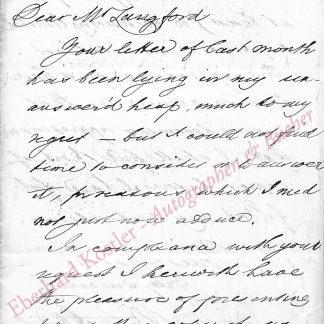 Dear Mr Langford
Your letter of last month
has been lying in my un-
answer'd heap, much to my
regret — but I could not find
time to consider or to answer
it, for reasons which I need
not just now adduce.
In compliance with your
request I herewith have
the pleasure of presenting
Eberhard Köstler - Autographen &